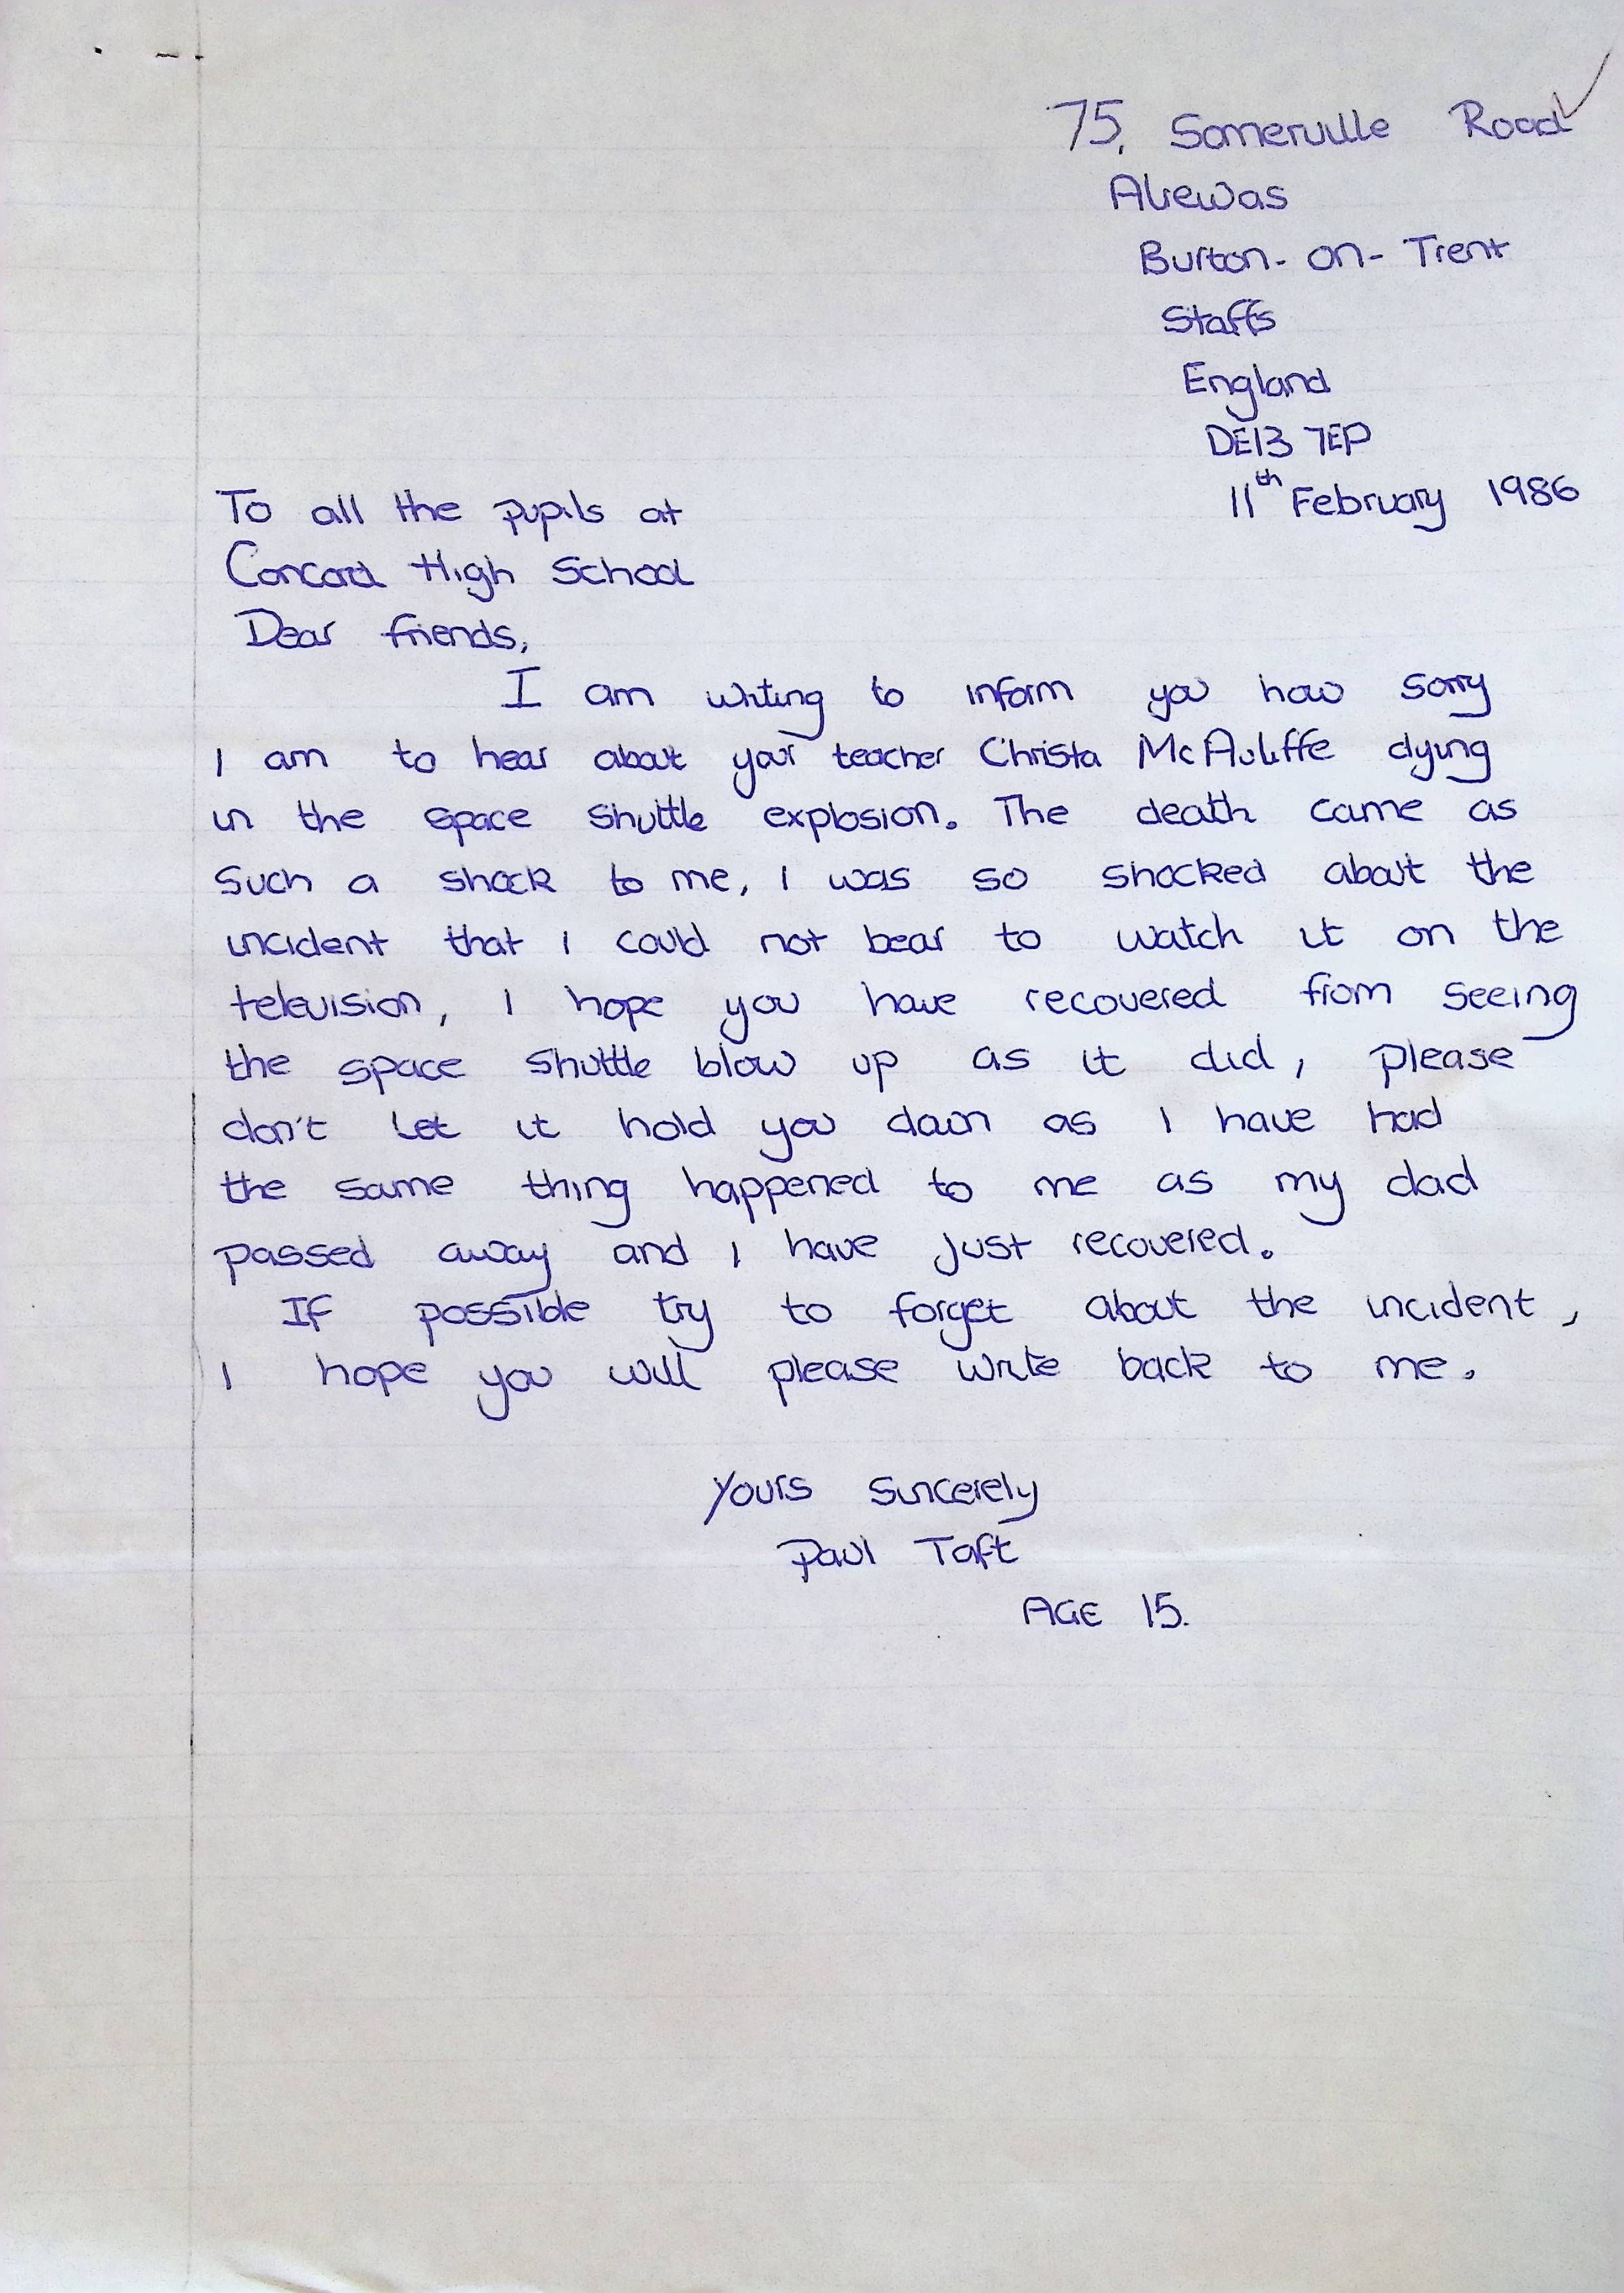 75, Somerville Road
Alrewas
Burton-on-Trent
Staffs
England
DE13 7EP
11th February 1986
To all the pupils at
Concord High School
Dear friends,
I am writing to inform you how sorry
I am to hear about your teacher Christa McAuliffe dying
in the space shuttle explosion. The death came as
such a shock to me, I was so shocked about the
incident that I could not bear to watch it on the
television, I hope you have recovered from seeing
the space shuttle blow up as it did, please
don't let it hold you down as I have had
the same thing happened to me as my dad
passed away and I have just recovered.
If possible try to forget about the incident,
I hope you will please write back to me.
Yours Sincerely
Paul Taft
AGE 15.